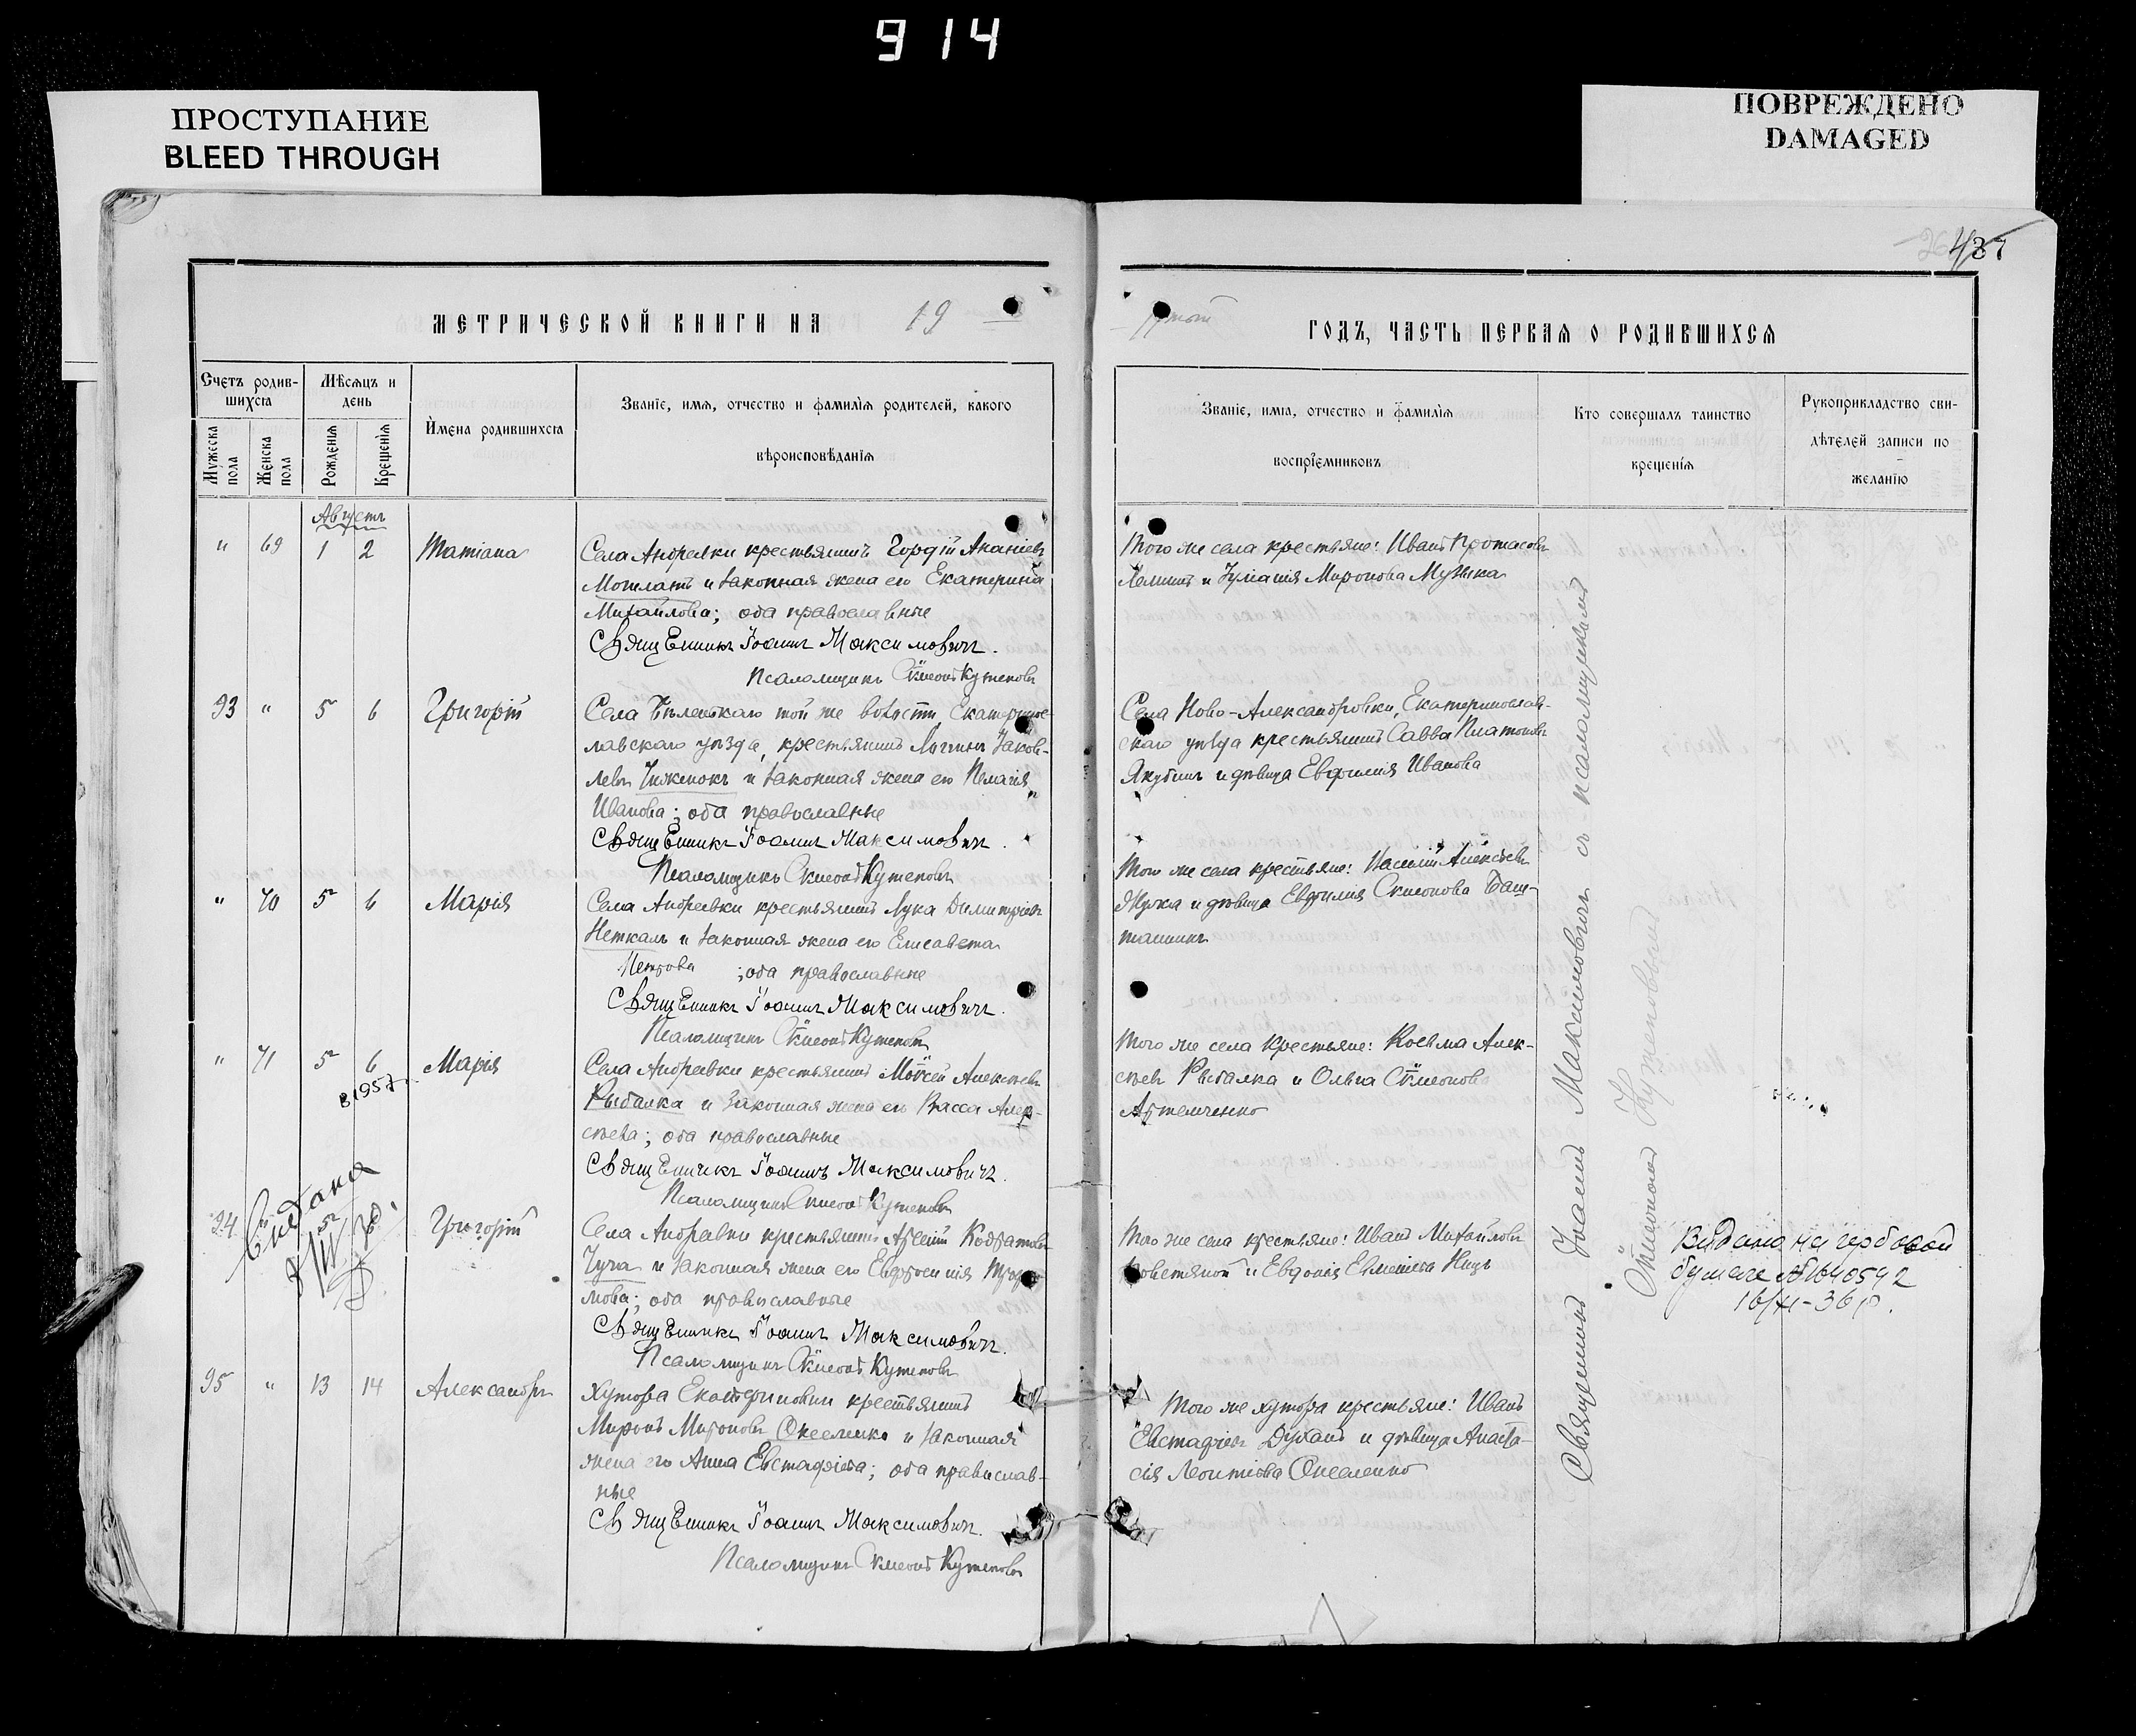 914
ПРОСТУПАНИЕ
BLEED THROUGH
ПОВРЕЖДЕНО
DAMAGED
437
МЕТРИЧЕСКОЙ КНИГИ НА 19
ГОДЪ, ЧАСТЬ ПЕРВАЯ О РОДИВШИХСЯ
Счетъ родив-
шихся
Мѣсяцъ и
день
Мужеска
пола
Женска
пола
Рожденія
Крещенія
Имена родившихся
Званіе, имя, отчество и фамилія родителей, какого
вѣроисповѣданія
Званіе, имя, отчество и фамилія
воспріемниковъ
Кто совершалъ таинство
крещенія
Рукоприкладство сви-
дѣтелей записи по
желанію
Августъ
" 69 1 2 Татіана
Села Андреевки крестьянинъ Гордій Ананіевъ
и законная жена его Екатерина
Михайлова; оба православные
Священникъ Іоаннъ Максимовичъ.
Псаломщикъ Сѵмеонъ Кутеповъ
Того же села крестьяне: Иванъ Протасовъ
и Миронова Музыка
93 " 5 6 Григорій
Села Бѣленькаго той же волости, Екатеринос-
лавскаго уѣзда, крестьянинъ Логгинъ Іаков-
левъ Чиженокъ и законная жена его Пелагія
Иванова; оба православные
Священникъ Іоаннъ Максимовичъ.
Псаломщикъ Сѵмеонъ Кутеповъ
Села Ново-Александровки, Екатеринослав-
скаго уѣзда крестьянинъ Савва Платоновъ
Якубинъ и дѣвица Евфимія Иванова
" 70 5 6 Марія
Села Андреевки крестьянинъ Лука Димитріевъ
Неткалъ и законная жена его Елисавета
Петрова ; оба православные
Священникъ Іоаннъ Максимовичъ.
Псаломщикъ Сѵмеонъ Кутеповъ
Того же села крестьяне: Алексѣевъ
и дѣвица Евфимія Сѵмеонова Баш-
танникъ
" 71 5 6 Марія
В 1957 г.
Села Андреевки крестьянинъ Моѵсей Алексѣевъ
Рыбалка и законная жена его Васса Алек-
сѣева; оба православные
Священникъ Іоаннъ Максимовичъ.
Псаломщикъ Сѵмеонъ Кутеповъ
Того же села крестьяне: Косьма Алек-
сѣевъ Рыбалка и Ольга Сѵмеонова
Артемченко
94 " 5 6 Григорій
Села Андреевки крестьянинъ Арсеній Кодратовъ
Чуча и законная жена его Евфросинія Трофи-
мова; оба православные
Священникъ Іоаннъ Максимовичъ.
Псаломщикъ Сѵмеонъ Кутеповъ
Того же села крестьяне: Иванъ Михайловъ
и Евдокія
Видана на гербовой
бумаге №1640592
16/XI-36 р.
95 " 13 14 Александръ
Хутора Екатериновки крестьянинъ
Миронъ Мироновъ Овсеенко и законная
жена его Анна Евстафіева; оба православ-
ные
Священникъ Іоаннъ Максимовичъ.
Псаломщикъ Сѵмеонъ Кутеповъ
Того же хутора крестьяне: Иванъ
Евстафіевъ Духанъ и дѣвица Анаста-
сія Леонтіева Овсеенко
Священникъ Іоаннъ Максимовичъ съ псаломщикомъ
Сѵмеономъ Кутеповымъ